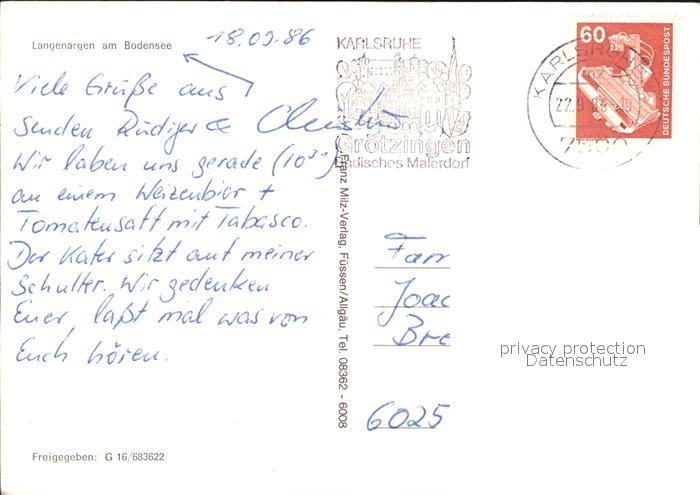 Langenargen am Bodensee
18.09.86
Viele Grüße aus
senden Rüdiger &
Wir laben uns gerade (10³⁰)
an einem Weizenbier +
Tomatensaft mit Tabasco.
Der Kater sitzt auf meiner
Schulter. Wir gedenken
Euer, laßt mal was von
Euch hören.
Freigegeben: G 16/683622
KARLSRUHE
Grötzingen
Badisches Malerdorf
Franz Milz-Verlag, Füssen/Allgäu, Tel. 08362 - 6008
60
DEUTSCHE BUNDESPOST
KARLSRUHE
7500
Fam
Joac
Bre
6025
privacy protection
Datenschutz